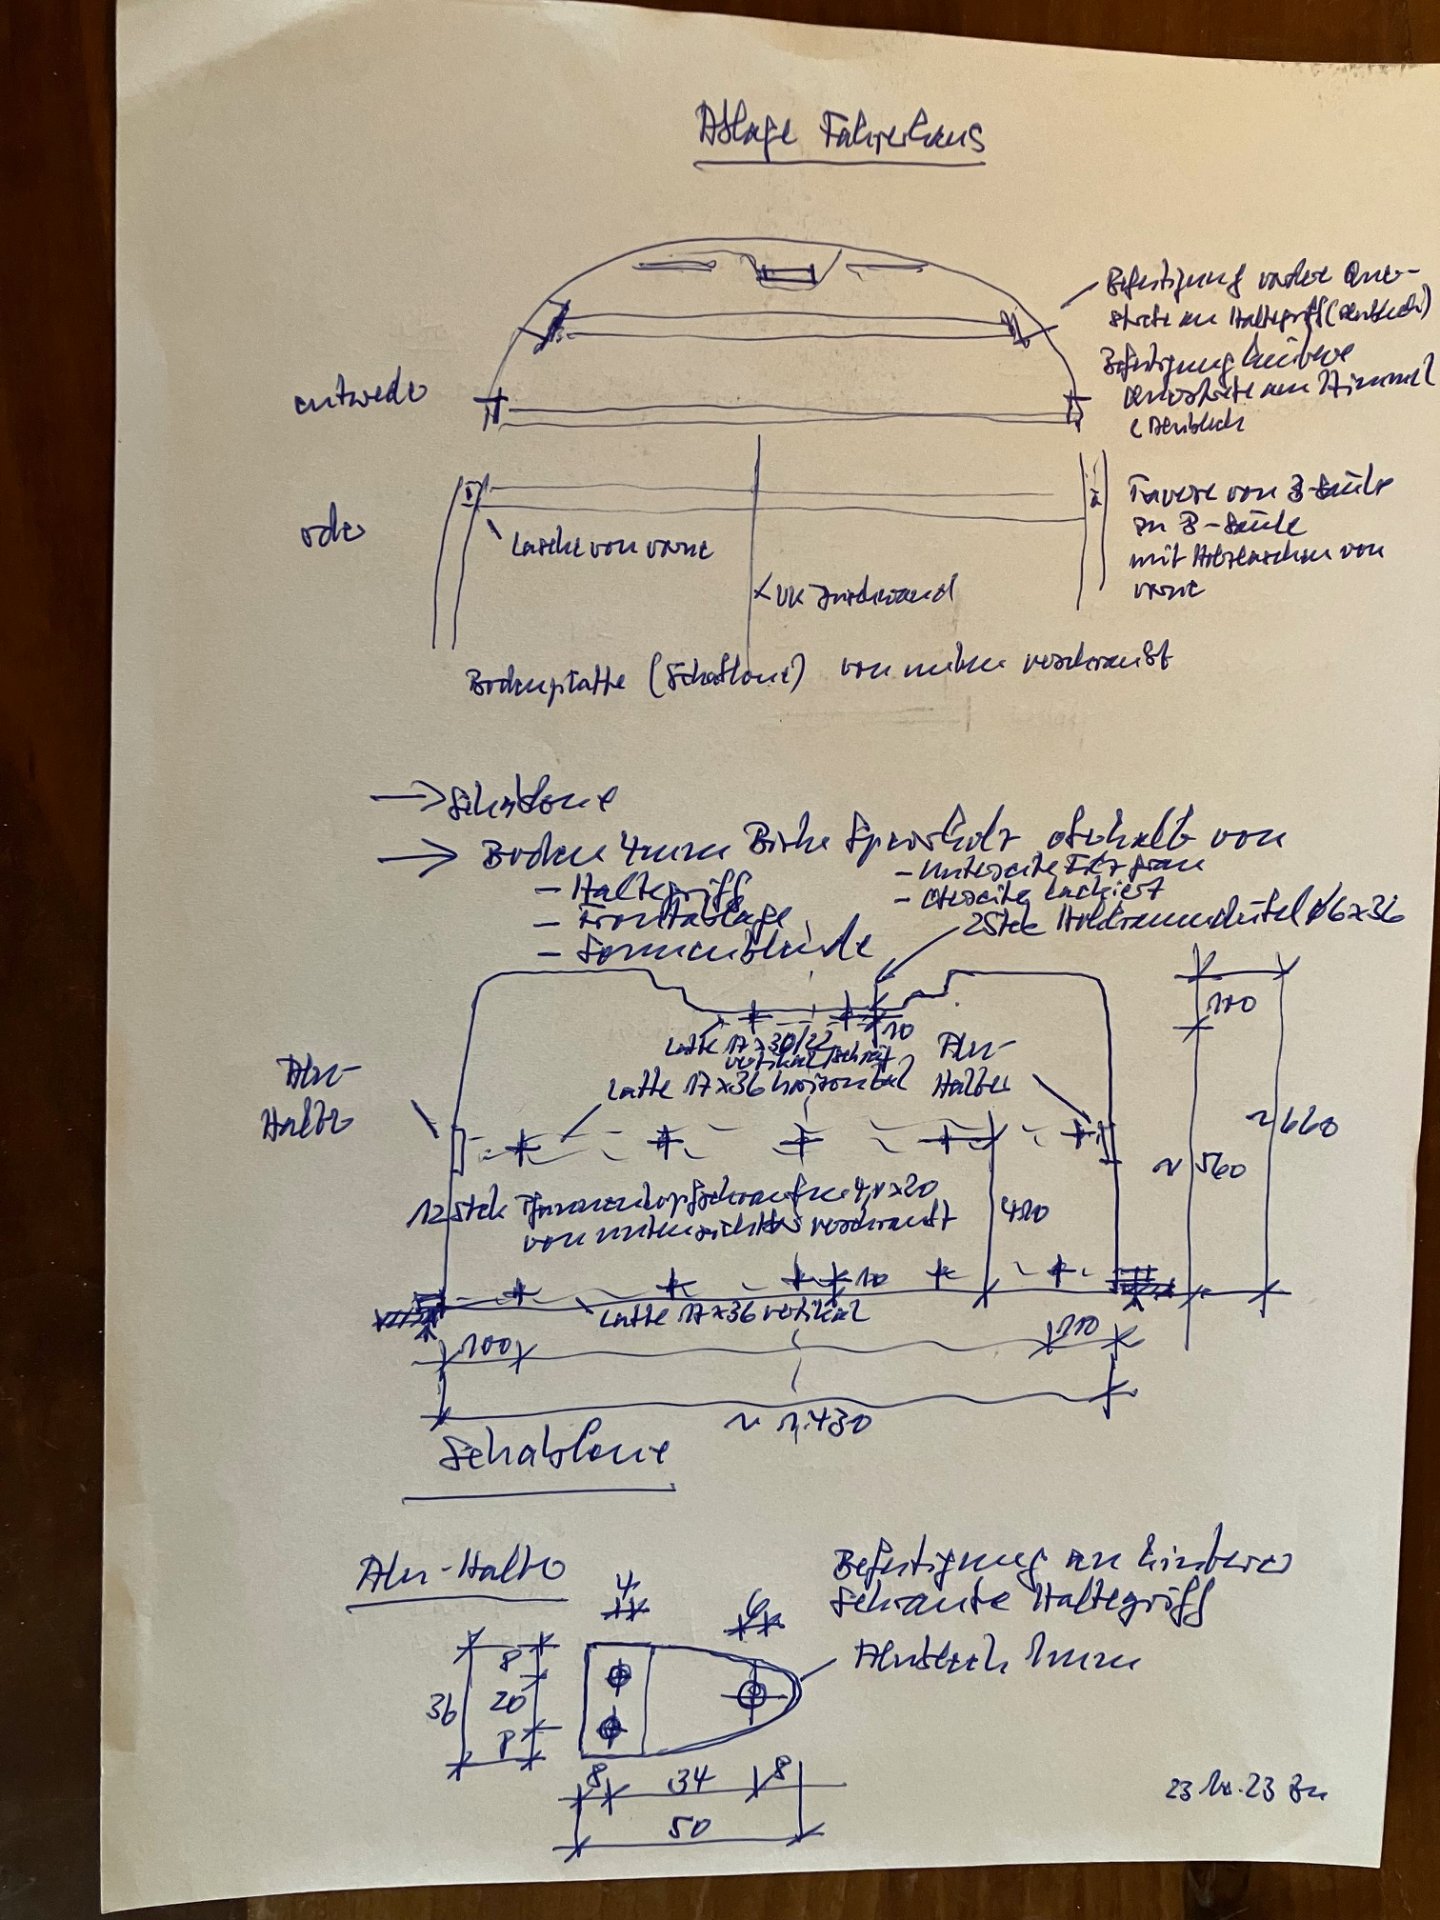 Ablage Fahrerhaus
Befestigung vordere Quer-
strebe an Haltegriff (Alublech)
Befestigung hintere
Querstrebe am Himmel
(Alublech
entweder
oder
Lasche von vorne
Traverse von B-Säule
zu B-Säule
mit Holzlaschen von
vorne
Bodenplatte (Schablone) von unten verschraubt
→ Schablone
→ Boden 4mm Birke Sperrholz oberhalb von
- Haltegriff
- Frontablage
- Sonnenblende
- Unterseite Filz grau
- Oberseite lackiert
2 Stck Hohlraumdübel ø6x36
110
10
Latte 17x30/22
vertikal
Latte 17x36 horizontal
Alu-
Halter
Alu-
Halter
~660
~560
12 Stck
von unten verschraubt
410
10
Latte 17x36 vertikal
100
110
~1.430
Schablone
Alu-Halter
Befestigung an hinterer
Schraube Haltegriff
Alublech 1mm
4
6
36
8
20
8
8
34
8
50
23.10.23